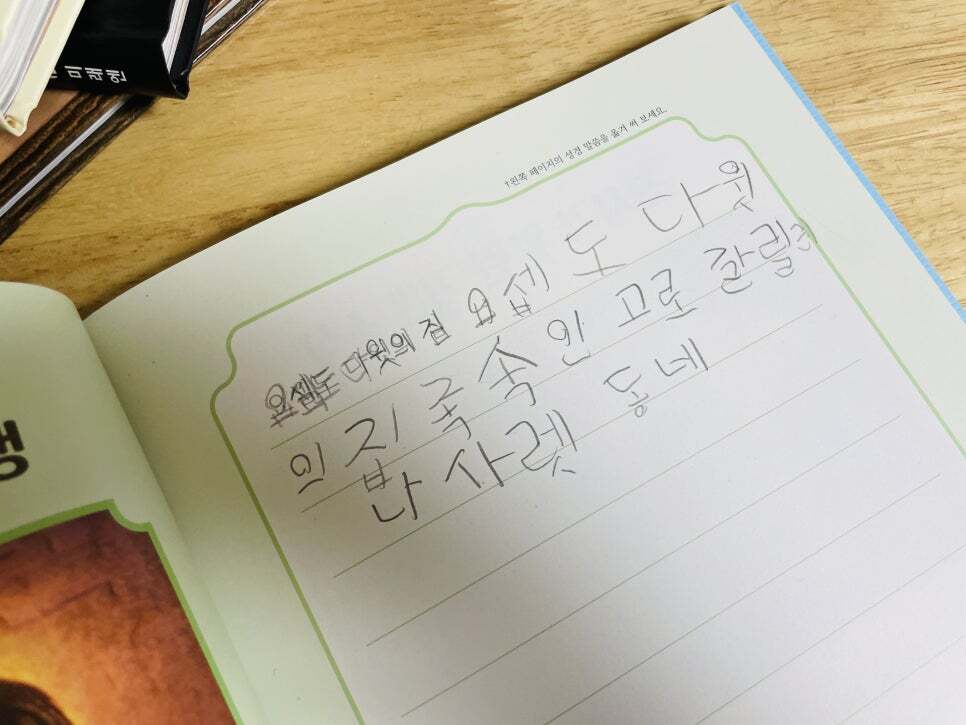 미래엔
†왼쪽 페이지의 성경 말씀을 옮겨 써 보세요.
요셉도 다윗의 집 요셉도 다윗
의 집 족속인 고로 갈릴리
나사렛 동네